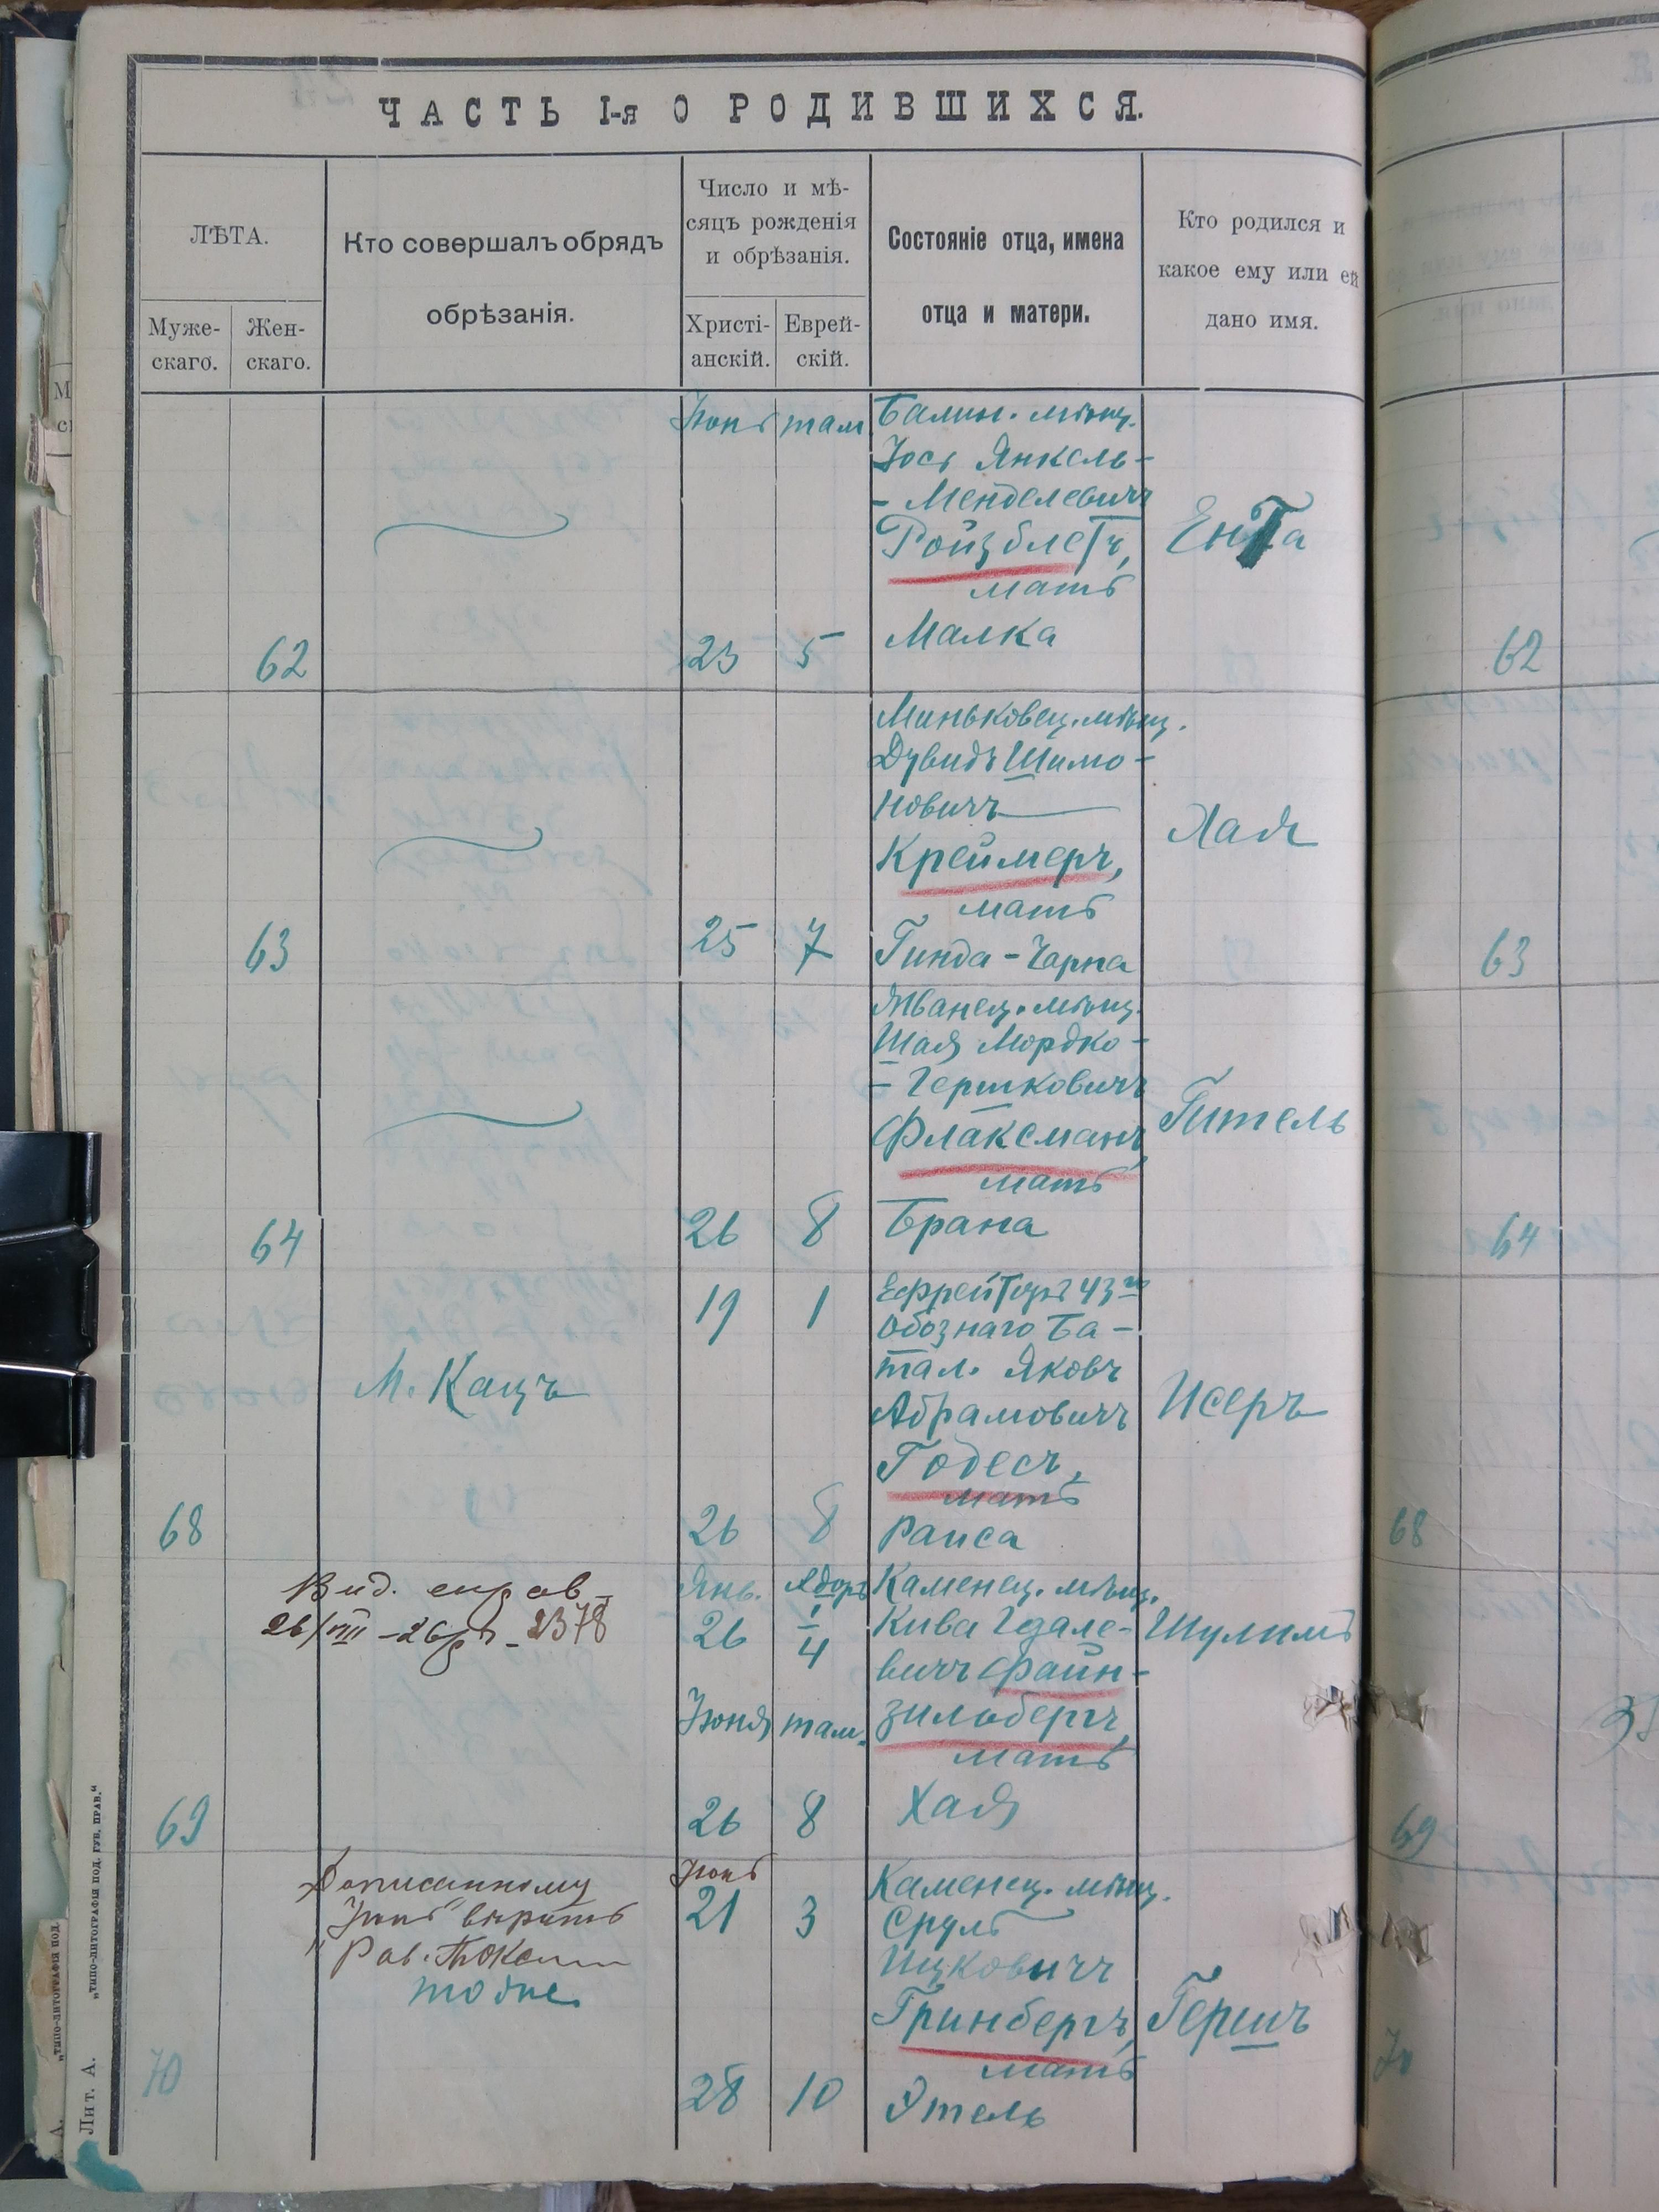 ЧАСТЬ I-я О РОДИВШИХСЯ.
ЛѢТА.
Муже-
скаго.
Жен-
скаго.
Кто совершалъ обрядъ
обрѣзанія.
Число и мѣ-
сяцъ рожденія
и обрѣзанія.
Христі-
анскій.
Еврей-
скій.
Состояніе отца, имена
отца и матери.
Кто родился и
какое ему или ей
дано имя.
62
Іюнь
23
там.
5
Балин. мѣщ.
Іось Янкель-
- Менделевичъ
Ройзблетъ,
мать
Малка
Ента
62
63
25
7
Миньковец. мѣщ.
Дувидъ Шимо-
новичъ
Креймеръ,
мать
Гинда - Чарна
Хая
63
64
26
8
Жванец. мѣщ.
Шая Мордко-
- Гершковичъ
Флаксманъ,
мать
Брана
Гитель
64
68
М. Кацъ
19
1
26
8
Ефрейторъ 43го
Обознаго Ба-
тал. Яковъ
Абрамовичъ
Годесъ,
мать
Раиса
Исеръ
68
Вид. справ-
26/VIII - 26р - 2378
69
Янв.
26
Адоръ
1
4
Іюня
26
там.
8
Каменец. мѣщ.
Кива Гдале-
вичъ Файн-
зильбергъ,
мать
Хая
Шулимъ
69
70
Дописанному
"Іюнь" вѣрить
Рав.
тоже
Іюнь
21
3
28
10
Каменец. мѣщ.
Сруль
Ицковичъ
Гринбергъ,
мать
Этель
Гершъ
70
Лит. А. „типо-литографія под. губ. прав.“